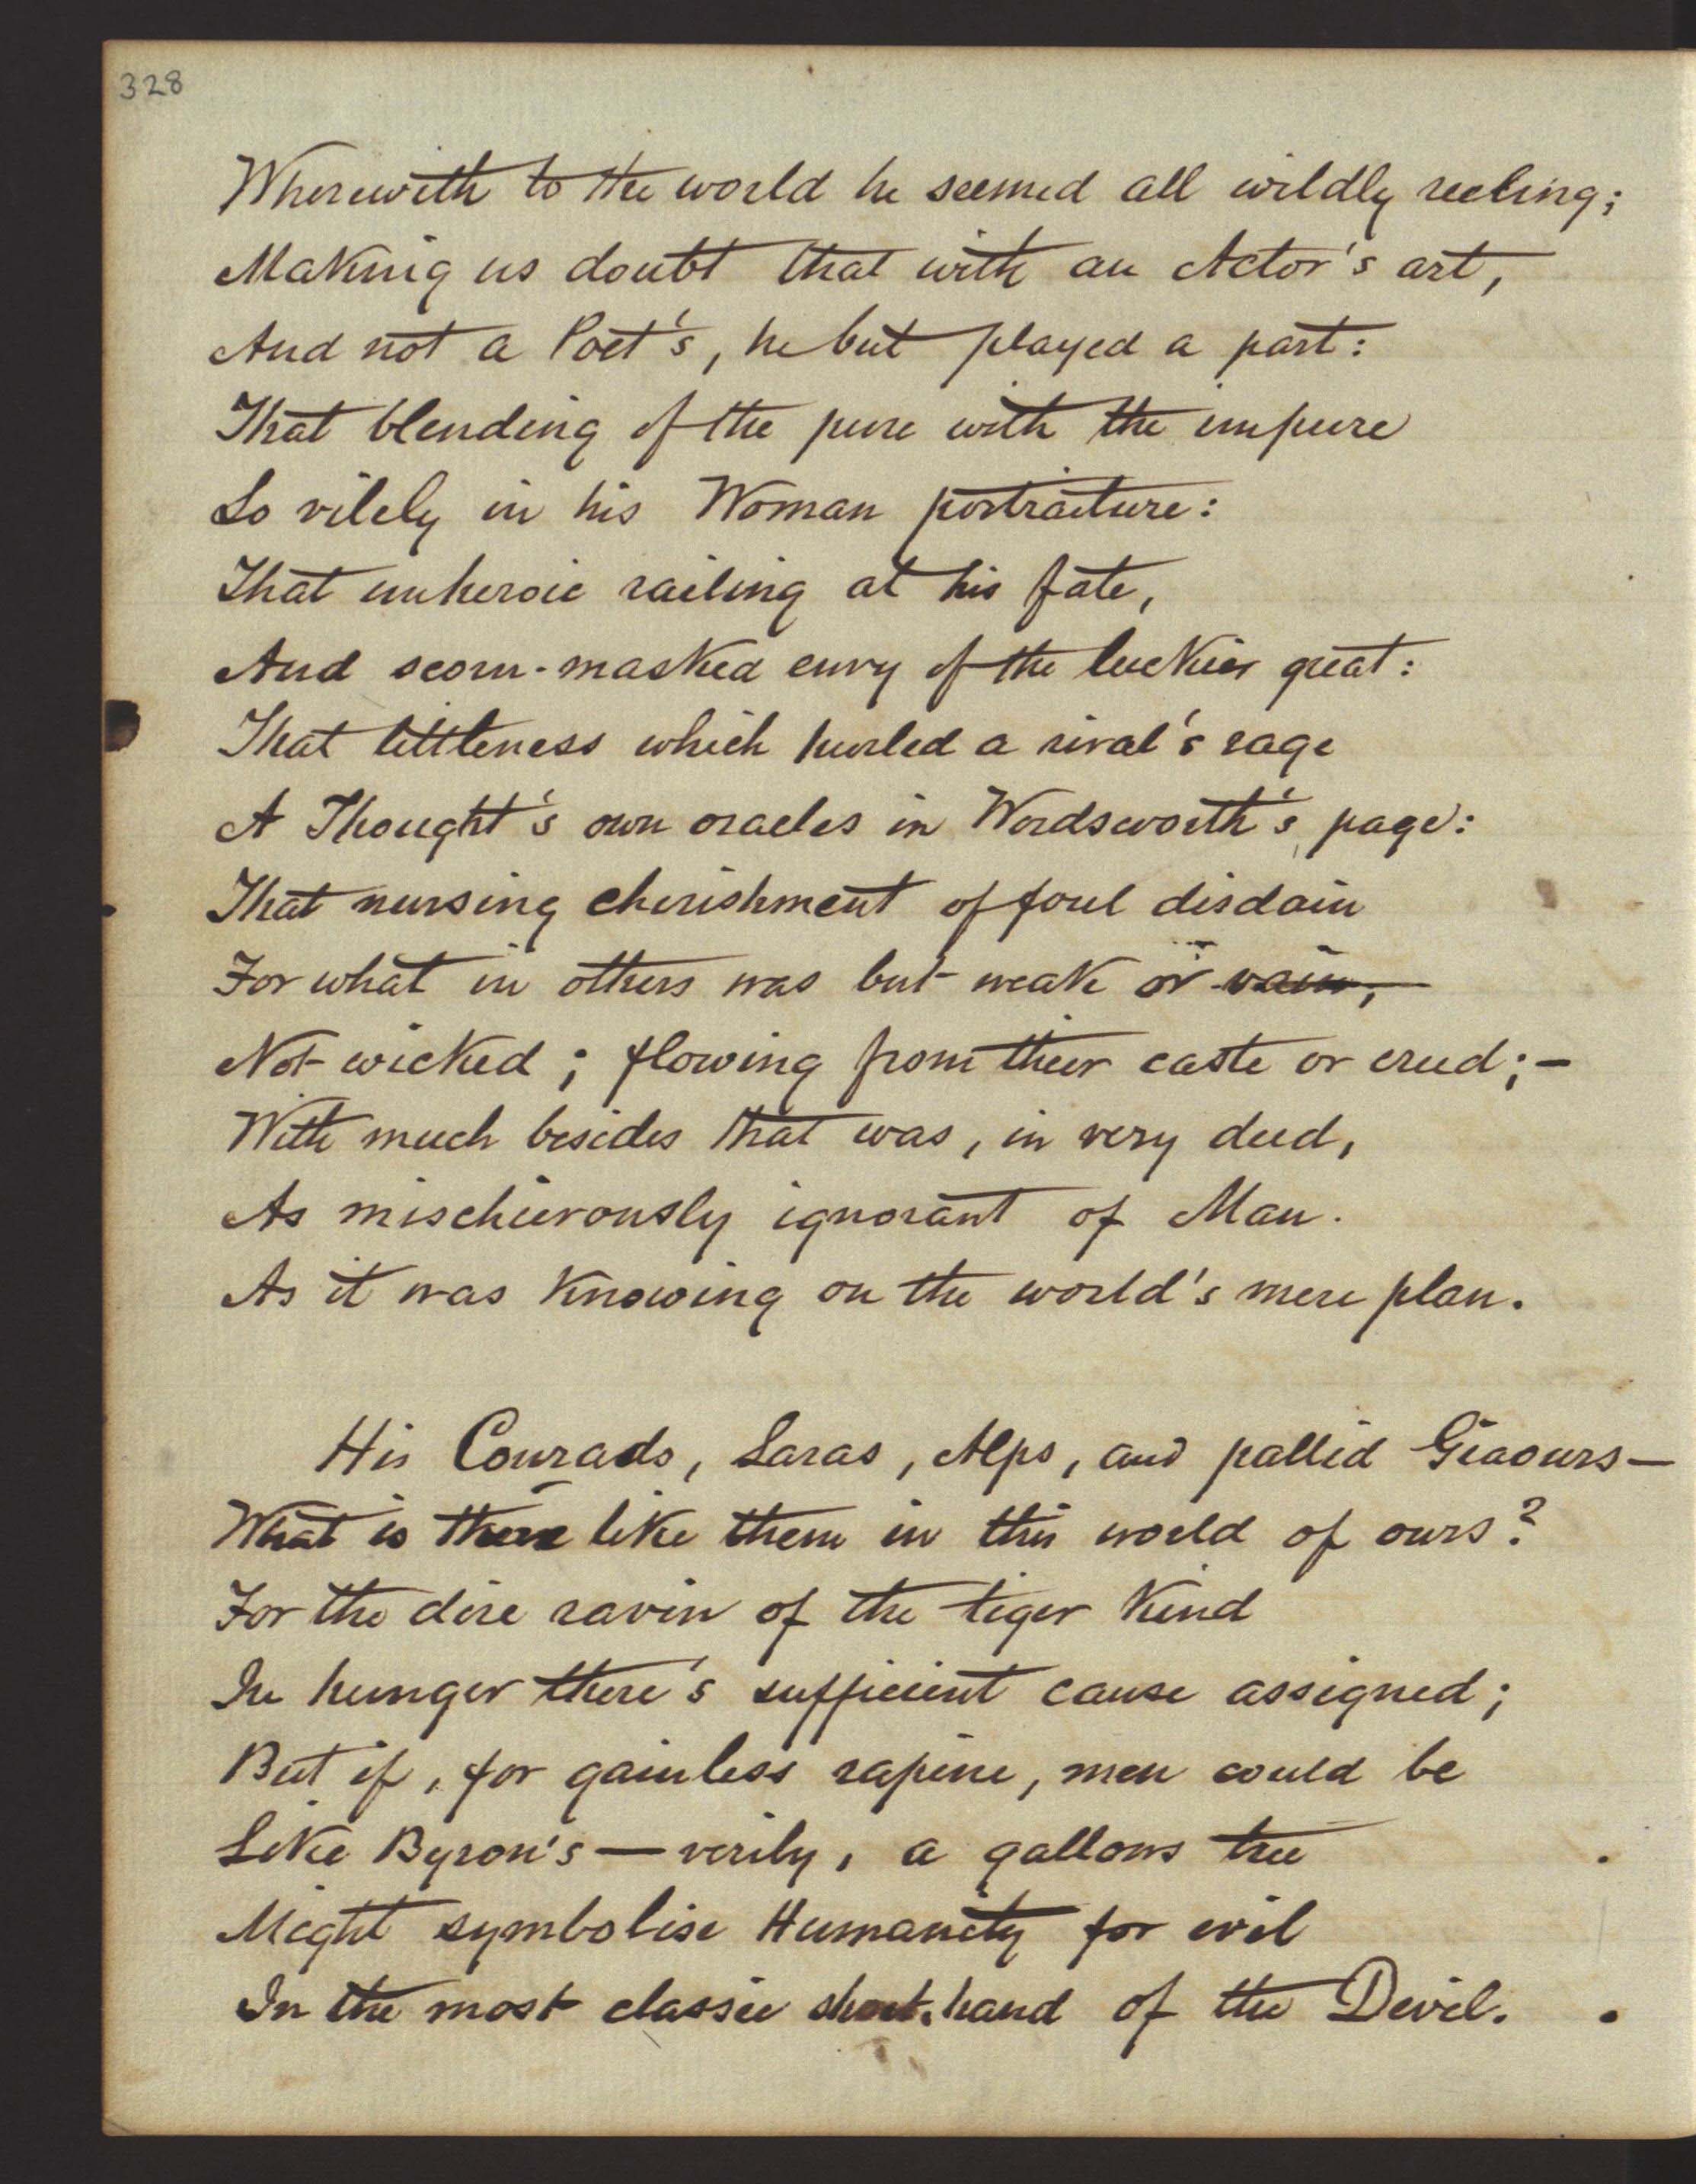 328
Wherewith to the world he seemed all wildly reeling;
Making us doubt that with an Actor's art,
And not a Poet's, he but played a part:
That blending of the pure with the impure
So vilely in his Woman portraiture:
That unheroic railing at his fate,
And scorn-masked envy of the luckier great:
That littleness which hurled a rival's rage
A Thought's own oracles in Wordsworth's page:
That nursing cherishment of foul disdain
For what in others was but weak or vain,
Not wicked; flowing from their caste or creed;—
With much besides that was, in very deed,
As mischievously ignorant of Man.
As it was Knowing on the world's mere plan.
His Conrads, Laras, Alps, and pallid Giaours—
What is there like them in this world of ours?
For the dire ravin of the tiger Kind
In hunger there's sufficient cause assigned;
But if, for gainless rapine, men could be
Like Byron's—verily, a gallows tree
Might symbolise Humanity for evil
In the most classic short-hand of the Devil.